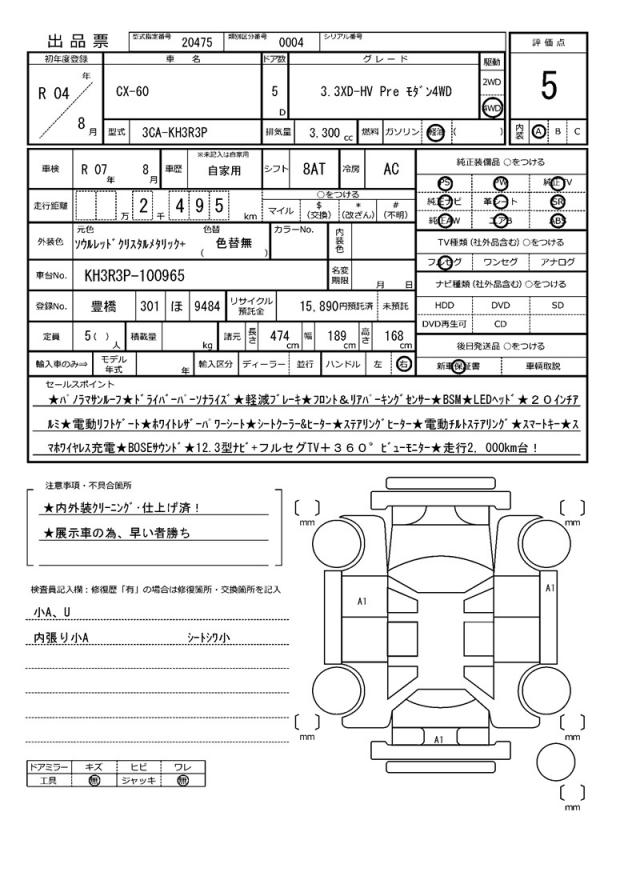 出品票 型式指定番号 20475 類別区分番号 0004 シリアル番号
初年度登録 車名 ドア数 グレード 駆動 評価点
R 04 年 8 月 CX-60 5 D 3.3XD-HV Pre ﾓﾀﾞﾝ4WD 2WD 4WD 5
型式 3CA-KH3R3P 排気量 3,300 cc 燃料 ガソリン 軽油 ( ) 内装 A B C
車検 R 07 年 8 月 車歴 ※未記入は自家用 自家用 シフト 8AT 冷房 AC 純正装備品 ○をつける
PS PW 純正TV
走行距離 万 2 千 4 9 5 km ○をつける マイル $ (交換) * (改ざん) # (不明) 純正ナビ 革シート SR
純正AW エアB ABS
外装色 元色 ｿｳﾙﾚｯﾄﾞｸﾘｽﾀﾙﾒﾀﾘｯｸ+ 色替 ( 色替無 ) カラーNo. 内装色 TV種類 (社外品含む) ○をつける
フルセグ ワンセグ アナログ
車台No. KH3R3P-100965 名変期限 月 日 ナビ種類 (社外品含む) ○をつける
登録No. 豊橋 301 ほ 9484 リサイクル預託金 15,890円預託済 未預託 HDD DVD SD
DVD再生可 CD
定員 5( ) 人 積載量 kg 諸元 長さ 474 cm 幅 189 cm 高さ 168 cm 後日発送品 ○をつける
輸入車のみ⇒ モデル年式 年 輸入区分 ディーラー 並行 ハンドル 左 右 新車保証書 車輌取説
セールスポイント
★ﾊﾟﾉﾗﾏｻﾝﾙｰﾌ★ﾄﾞﾗｲﾊﾞｰﾊﾟｰｿﾅﾗｲｽﾞ★軽減ﾌﾞﾚｰｷ★ﾌﾛﾝﾄ＆ﾘｱﾊﾟｰｷﾝｸﾞｾﾝｻｰ★BSM★LEDﾍｯﾄﾞ★２０ｲﾝﾁｱ
ﾙﾐ★電動ﾘﾌﾄｹﾞｰﾄ★ﾎﾜｲﾄﾚｻﾞｰﾊﾟﾜｰｼｰﾄ★ｼｰﾄｸｰﾗｰ&ﾋｰﾀｰ★ｽﾃｱﾘﾝｸﾞﾋｰﾀｰ★電動ﾁﾙﾄｽﾃｱﾘﾝｸﾞ★ｽﾏｰﾄｷｰ★ｽ
ﾏﾎﾜｲﾔﾚｽ充電★BOSEｻｳﾝﾄﾞ★12.3型ﾅﾋﾞ+フルセグTV+３６０°ﾋﾞｭｰﾓﾆﾀｰ★走行2，000km台！
注意事項・不具合箇所
★内外装ｸﾘｰﾆﾝｸﾞ･仕上げ済！
★展示車の為、早い者勝ち
検査員記入欄：修復歴「有」の場合は修復箇所・交換箇所を記入
小A、U
内張り小A ｼｰﾄｼﾜ小
ドアミラー キズ ヒビ ワレ
工具 無 ジャッキ 無
mm
mm
A1
A1
mm
A1
mm
mm